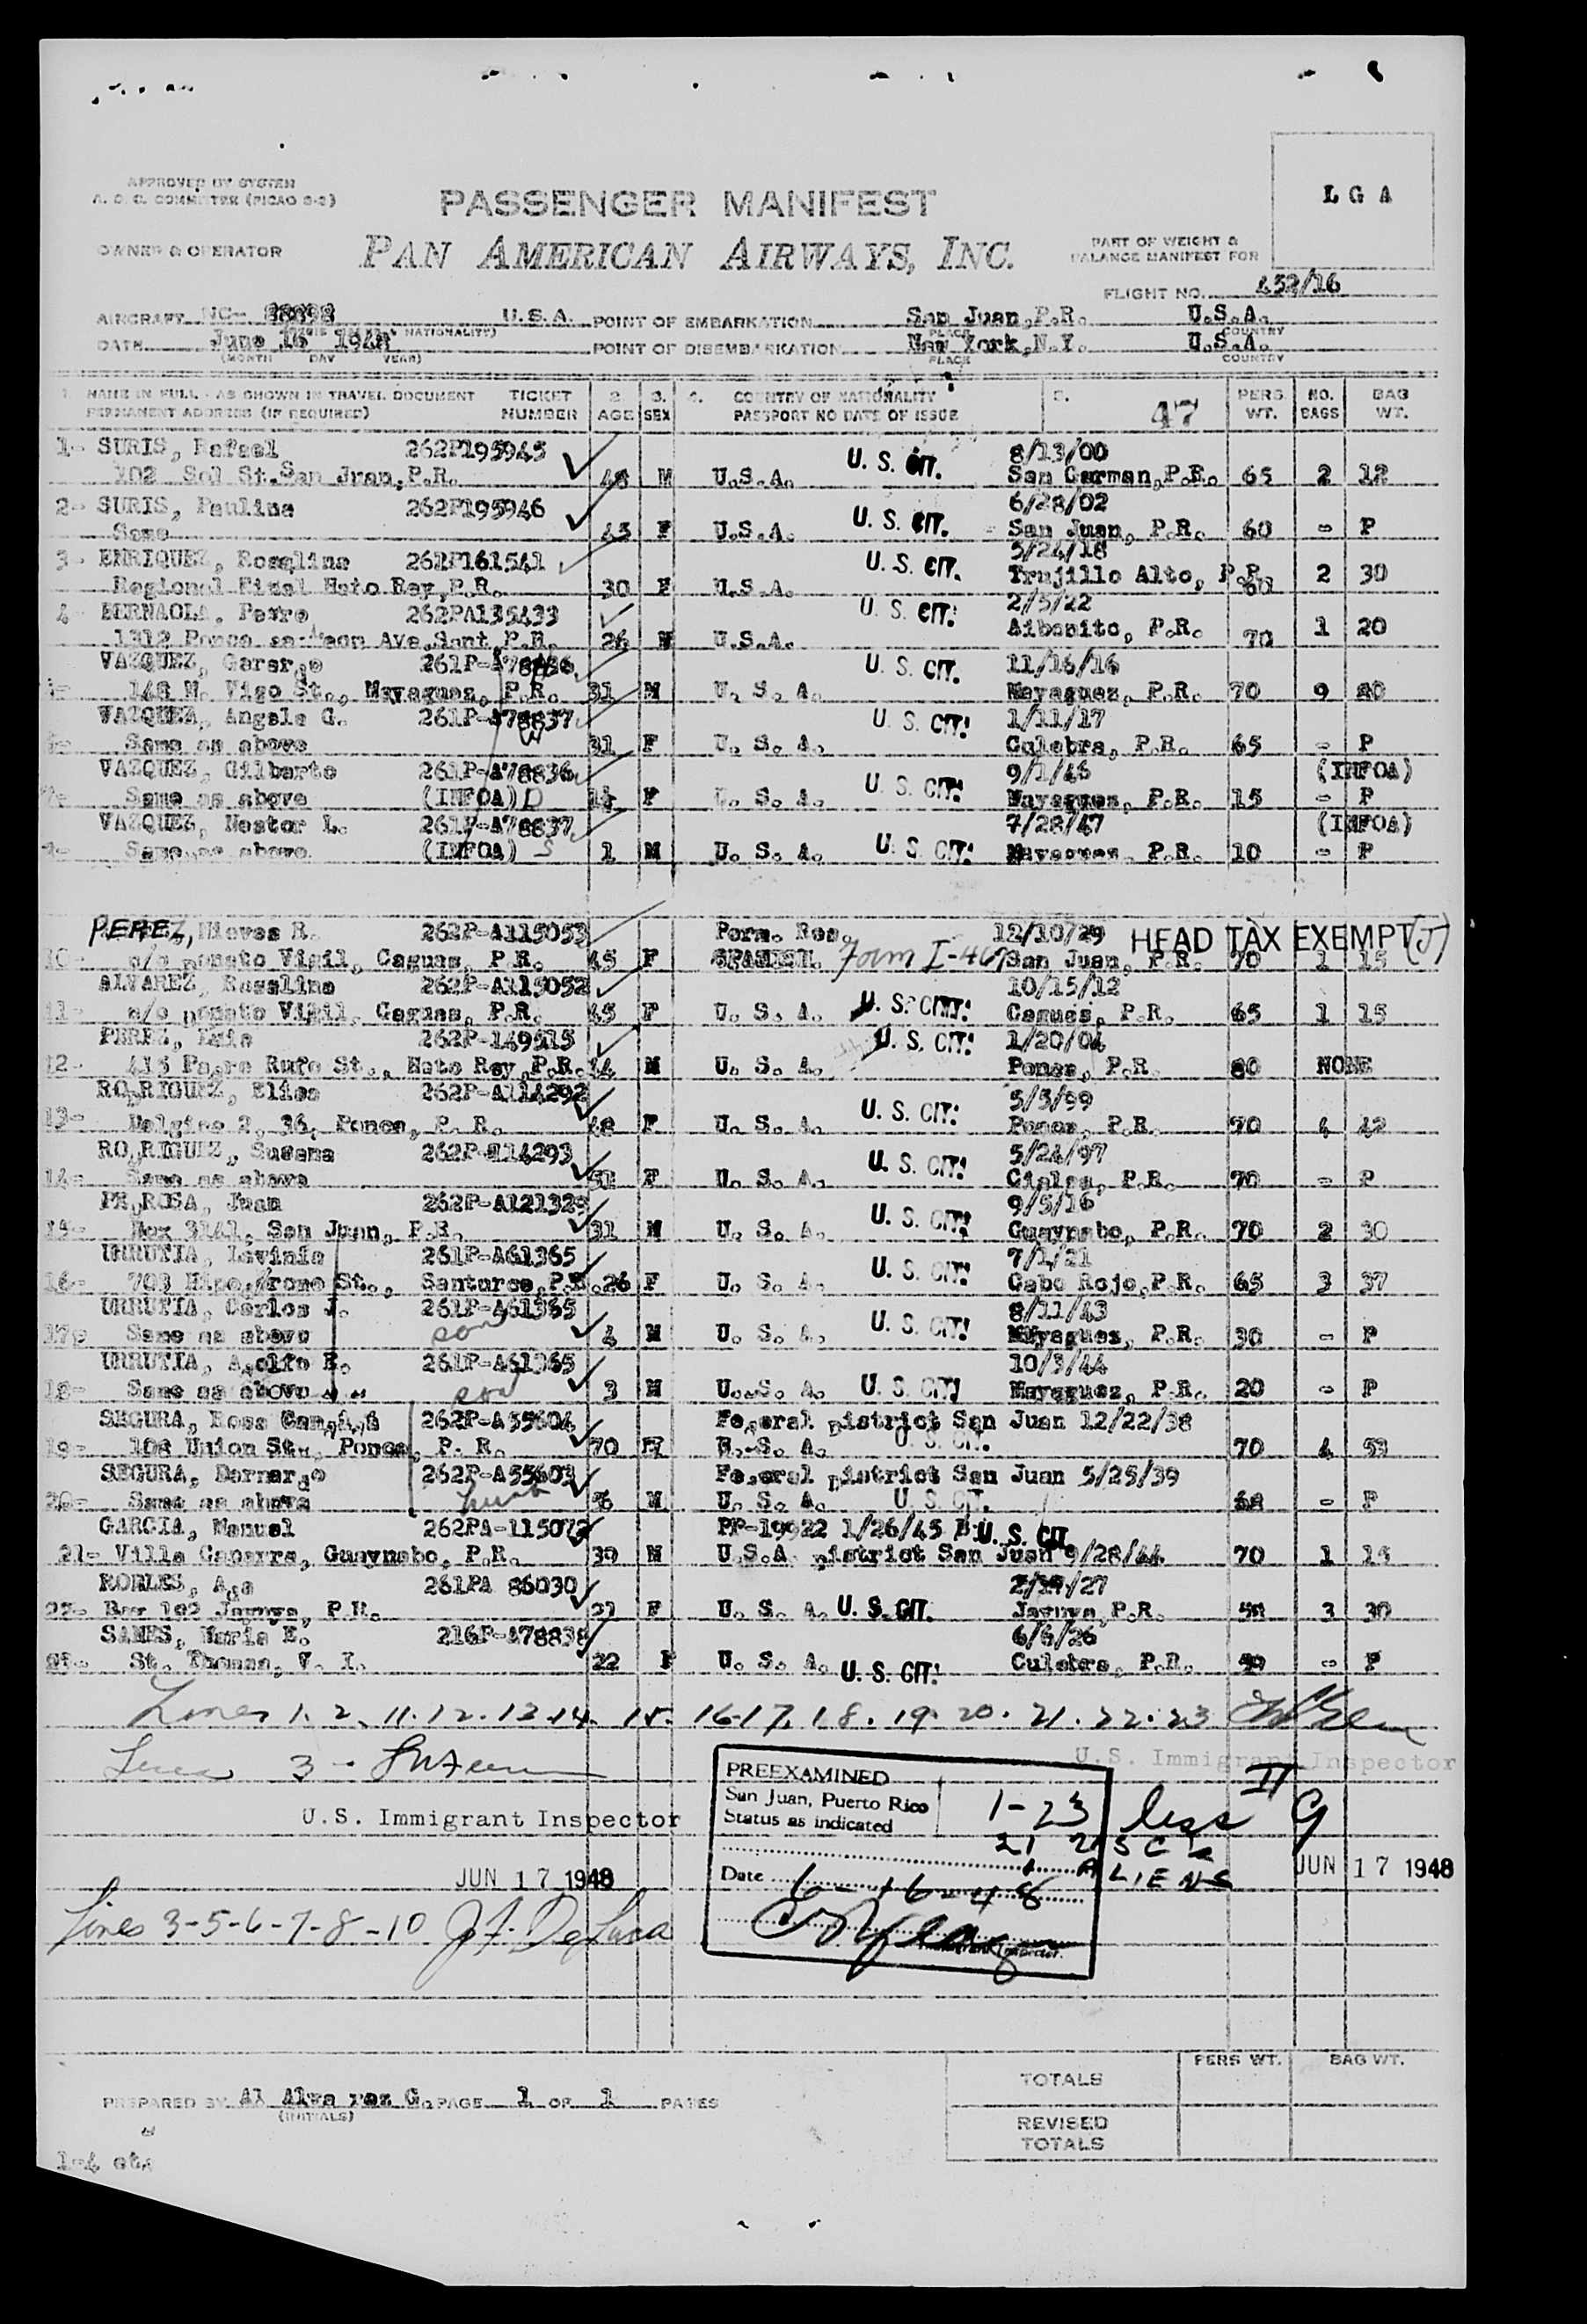 APPROVED BY SYSTEM
A. O. C. COMMITTEE (PICAO 2-2)
PASSENGER MANIFEST
L G A
OWNER & OPERATOR
PAN AMERICAN AIRWAYS, INC.
PART OF WEIGHT &
BALANCE MANIFEST FOR
FLIGHT NO. 452/16
AIRCRAFT NC- U.S.A. POINT OF EMBARKATION San Juan, P.R. U.S.A.
NATIONALITY) PLACE COUNTRY
DATE June 16 1948 POINT OF DISEMBARKATION New York, N.Y. U.S.A.
(MONTH DAY YEAR) PLACE COUNTRY
1 NAME IN FULL - AS SHOWN IN TRAVEL DOCUMENT TICKET 2. 3. 4. COUNTRY OF NATIONALITY 5. 47 PERS. NO. BAG
PERMANENT ADDRESS (IF REQUIRED) NUMBER AGE SEX PASSPORT NO DATE OF ISSUE WT. BAGS WT.
1- SURIS, Rafael 262P195945 U. S. CIT. 8/13/00
102 Sol St. San Juan, P.R. 48 M U.S.A. San German, P.R. 65 2 12
2- SURIS, Paulina 262P195946 U. S. CIT. 6/28/02
Same 45 F U.S.A. San Juan, P.R. 60 - P
3- ENRIQUEZ, Rosalina 262P161541 U. S. CIT. 5/24/18
Regional Fidal Hato Rey, P.R. 30 F U.S.A. Trujillo Alto, P.R. 60 2 30
4- BERNAOLA, Pedro 262PA135433 U. S. CIT. 2/5/22
1312 Ponce de Leon Ave, Sant, P.R. 26 M U.S.A. Aibonito, P.R. 70 1 20
VAZQUEZ, Gerardo 261P-A78836 U. S. CIT. 11/16/16
5- 148 M. Vigo St., Mayaguez, P.R. 31 M U. S. A. Mayaguez, P.R. 70 9 80
VAZQUEZ, Angela G. 261P-A78837 U. S. CIT. 1/11/17
6- Same as above 31 F U. S. A. Culebra, P.R. 65 - P
VAZQUEZ, Gilberto 261P-A78836 U. S. CIT. 9/1/46 (INFOA)
7- Same as above (INFOA) D F U. S. A. Mayaguez, P.R. 15 - P
VAZQUEZ, Nestor L. 261P-A78837 7/28/47 (INFOA)
Same as above (INFOA) S 1 M U. S. A. U. S. CIT. Mayaguez, P.R. 10 - P
PEREZ, Nieves R. 262P-A115053 Perm. Res. 12/10/29 HEAD TAX EXEMPT (J)
10- c/o Donato Vigil, Caguas, P.R. 45 F SPANISH. Form I-467 San Juan, P.R. 70 1 15
ALVAREZ, Rosalina 262P-A115052 10/15/12
11- c/o Donato Vigil, Caguas, P.R. 45 F U. S. A. U. S. CIT. Caguas, P.R. 65 1 15
PEREZ, Luis 262P-149515 U. S. CIT. 1/20/04
12- 413 Padre Rufo St., Hato Rey, P.R. 44 M U. S. A. Ponce, P.R. 80 NONE
RODRIGUEZ, Elisa 262P-A114292 U. S. CIT. 5/3/99
13- Belgica 2, 36, Ponce, P. R. F U. S. A. Ponce, P.R. 70 4 42
RODRIGUEZ, Susana 262P-A114293 U. S. CIT. 5/24/97
14- Same as above 51 F U. S. A. Ciales, P.R. 70 - P
PEDROSA, Juan 262P-A121329 U. S. CIT. 9/5/16
15- Box 3141, San Juan, P.R. 31 M U. S. A. Guaynabo, P.R. 70 2 30
URRUTIA, Lavinia 261P-A61365 U. S. CIT. 7/1/21
16- 703 Hipodromo St., Santurce, P.R. 26 F U. S. A. Cabo Rojo, P.R. 65 3 37
URRUTIA, Carlos J. 261P-A61365 8/11/43
17- Same as above son 4 M U. S. A. U. S. CIT. Mayaguez, P.R. 30 - P
URRUTIA, Adolfo E. 261P-A61365 10/3/44
18- Same as above son 3 M U. S. A. U. S. CIT. Mayaguez, P.R. 20 - P
SEGURA, Rosa 262P-A55604 Federal District San Juan 12/22/38
19- 108 Union St., Ponce, P. R. 70 U. S. A. U. S. CIT. 70 4 59
SEGURA, Bernardo 262P-A55603 Federal District San Juan 5/25/39
20- Same as above husb M U. S. A. U. S. CIT. 68 - P
GARCIA, Manuel 262PA-115072 PP-19922 1/26/45 U. S. CIT.
21- Villa Caparra, Guaynabo, P.R. 39 M U.S.A. District San Juan 9/28/44 70 1 14
ROBLES, Ada 261PA 86030 /27
22- Box 192 Jayuya, P.R. 21 F U. S. A. U. S. CIT. Jayuya, P.R. 3 30
SANES, Maria E. 216P-A78838 6/6/26
23- St. Thomas, V. I. 22 F U. S. A. U. S. CIT. Culebra, P.R. - P
Lines 1. 2. 11. 12. 13. 14. 15. 16-17. 18. 19. 20. 21. 22. 23
U.S. Immigrant Inspector
Lines 3 -
U.S. Immigrant Inspector
PREEXAMINED
San Juan, Puerto Rico
Status as indicated
1-23 less
21 USC
1 ALIENS
Date 6-16-48
Immigrant Inspector.
JUN 17 1948
JUN 17 1948
Lines 3-5-6-7-8-10 J. F. DeLuca
PERS WT. BAG WT.
TOTALS
PREPARED BY Al Alvarez G. PAGE 1 OF 1 PAGES
(INITIALS)
REVISED
TOTALS